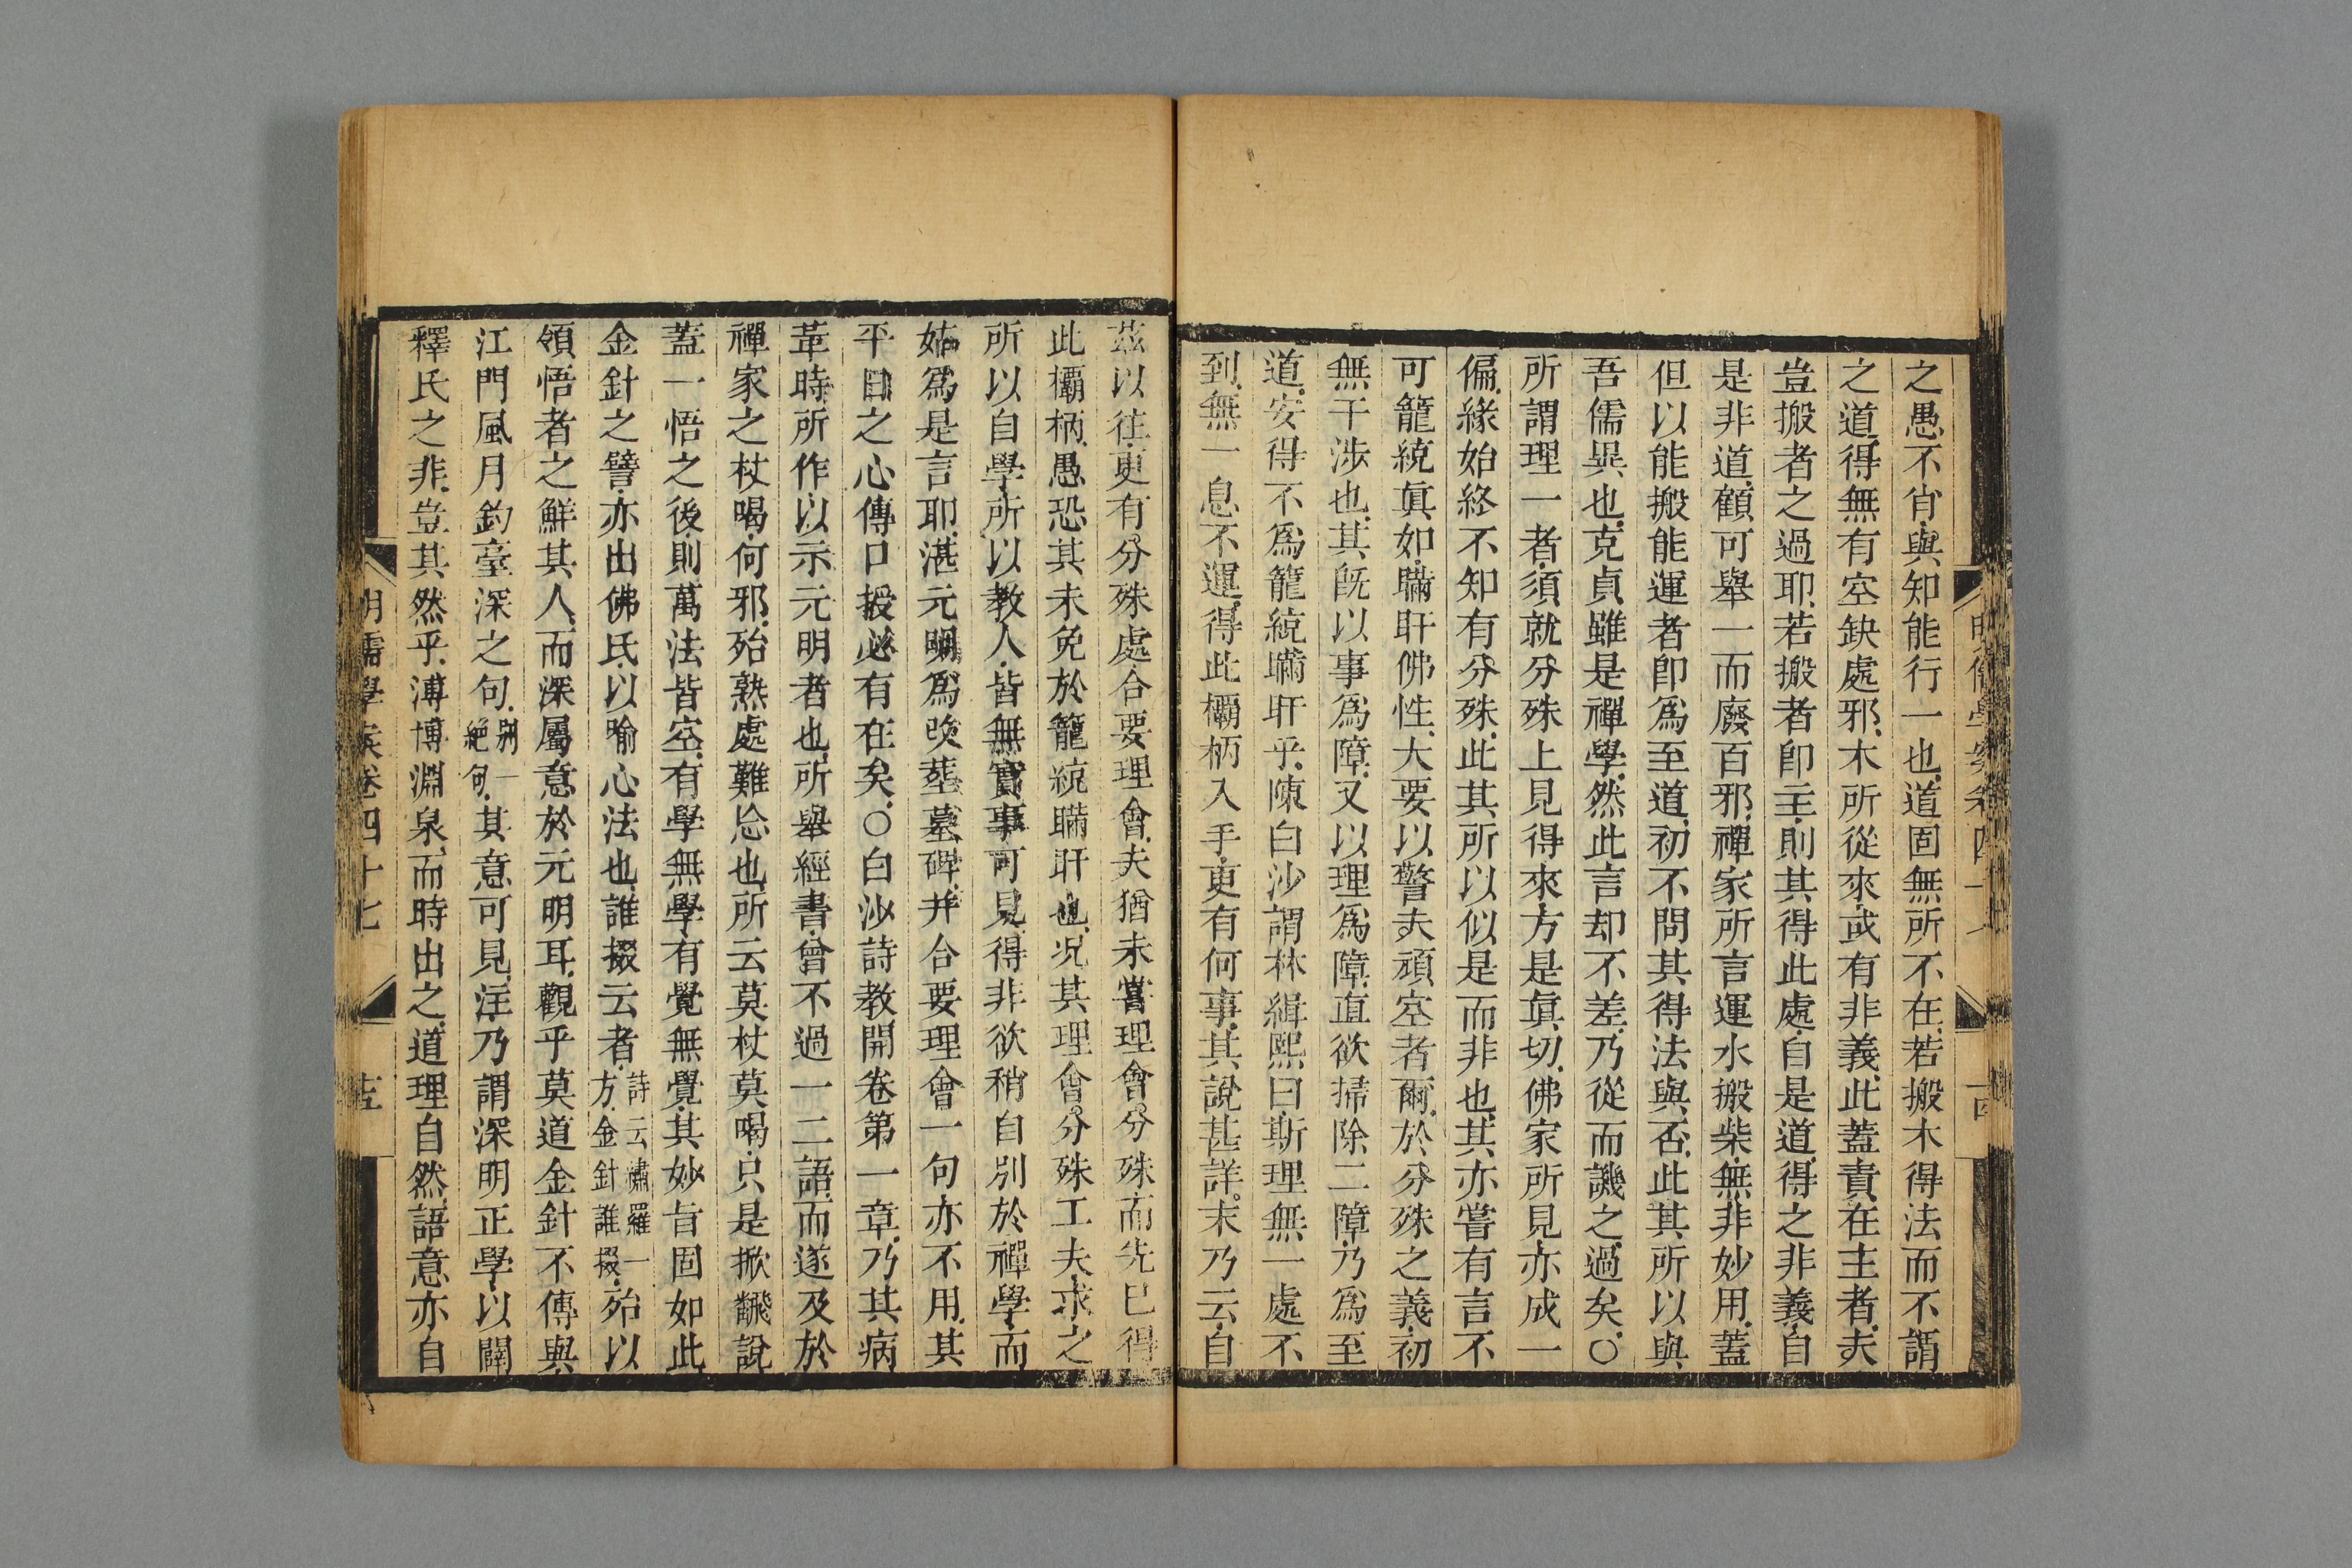 之愚不肖與知能行一也道固無所不在若搬木得法而不謂
之道得無有空缺處邪木所從來或有非義此蓋責在主者夫
豈搬者之過耶若搬者卽主則其得此處自是道得之非義自
是非道顧可舉一而廢百邪禪家所言運水搬柴無非妙用蓋
但以能搬能運者卽爲至道初不問其得法與否此其所以與
吾儒異也克貞雖是禪學然此言却不差乃從而譏之過矣○
所謂理一者須就分殊上見得來方是眞切佛家所見亦成一
偏緣始終不知有分殊此其所以似是而非也其亦嘗有言不
可籠統眞如瞞盰佛性大要以警夫頑空者爾於分殊之義初
無干涉也其旣以事爲障又以理爲障直欲掃除二障乃爲至
道安得不爲籠統瞞盰乎陳白沙謂林緝熙曰斯理無一處不
到無一息不運得此欛柄入手更有何事其說甚詳末乃云自
茲以往更有分殊處合要理會夫猶未嘗理會分殊而先已得
此欛柄愚恐其未免於籠統瞞盰也況其理會分殊工夫求之
所以自學所以教人皆無實事可見得非欲稍自別於禪學而
姑爲是言耶湛元明爲改葬墓碑并合要理會一句亦不用其
平日之心傳口授必有在矣○白沙詩教開卷第一章乃其病
革時所作以示元明者也所舉經書曾不過一二語而遂及於
禪家之杖喝何邪殆熟處難忘也所云莫杖莫喝只是掀飜說
蓋一悟之後則萬法皆空有學無學有覺無覺其妙旨固如此
金針之譬亦出佛氏以喻心法也誰掇云者詩云繡羅一方金針誰掇殆以
領悟者之鮮其人而深屬意於元明耳觀乎莫道金針不傳與
江門風月釣臺深之句別一絕句其意可見注乃謂深明正學以闢
釋氏之非豈其然乎溥博淵泉而時出之道理自然語意亦自
明儒學案卷四十七